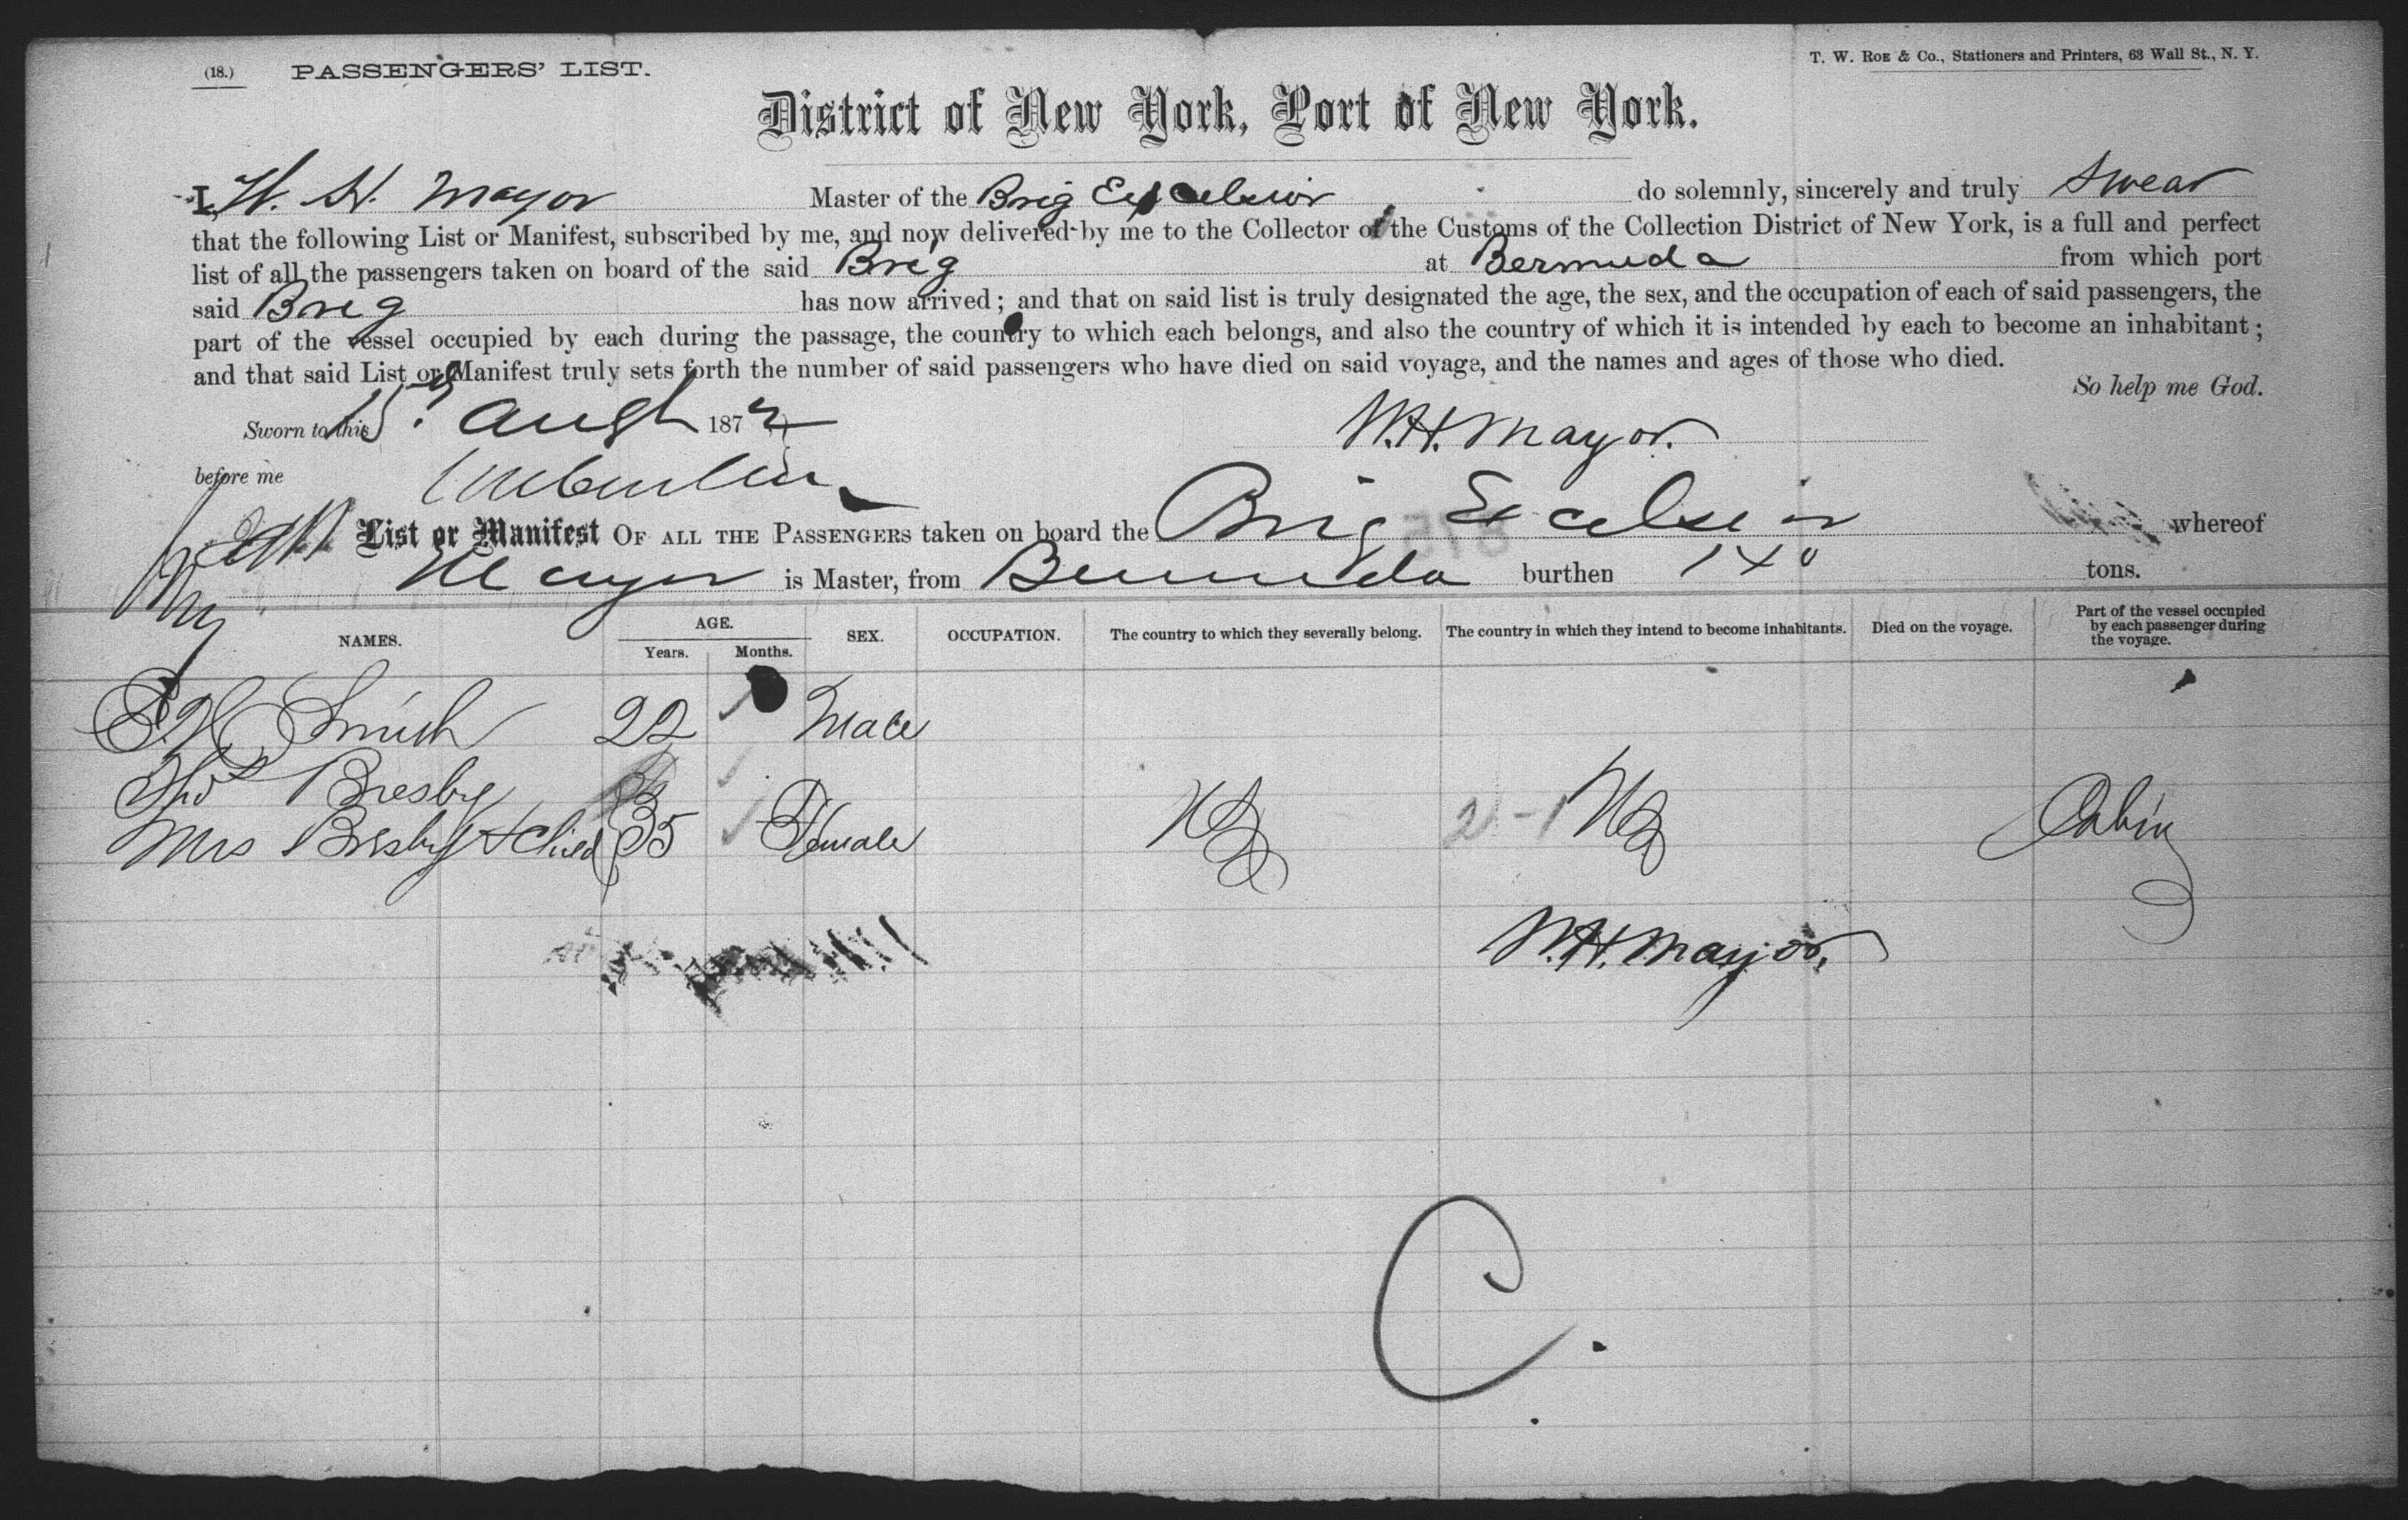 (18.) PASSENGERS' LIST.
T. W. ROE & Co., Stationers and Printers, 63 Wall St., N. Y.
District of New York, Port of New York.
I, W. H. Mayor Master of the Brig Excelsior do solemnly, sincerely and truly swear
that the following List or Manifest, subscribed by me, and now delivered by me to the Collector of the Customs of the Collection District of New York, is a full and perfect
list of all the passengers taken on board of the said Brig at Bermuda from which port
said Brig has now arrived; and that on said list is truly designated the age, the sex, and the occupation of each of said passengers, the
part of the vessel occupied by each during the passage, the country to which each belongs, and also the country of which it is intended by each to become an inhabitant;
and that said List or Manifest truly sets forth the number of said passengers who have died on said voyage, and the names and ages of those who died.
So help me God.
Sworn to this 15 Augt 187
W. H. Mayor.
before me
List or Manifest OF ALL THE PASSENGERS taken on board the Brig Excelsior whereof
Mayor is Master, from Bermuda burthen tons.
NAMES. AGE. Years. Months. SEX. OCCUPATION. The country to which they severally belong. The country in which they intend to become inhabitants. Died on the voyage. Part of the vessel occupied by each passenger during the voyage.
Smith 22 Male
Thos Bresby
Mrs Bresby & Child 35 Female US 2-1 US Cabin
W. H. Mayor.
C.